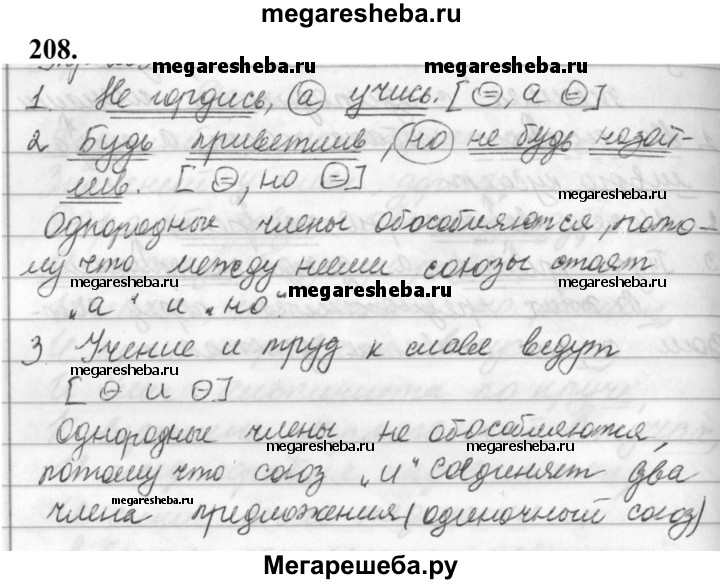 megaresheba.ru
208.
megaresheba.ru megaresheba.ru
1. Не гордись, а учись. [ , а ]
2 Будь приветлив, но не будь назой-
лив. [ , но ]
megaresheba.ru
Однородные члены обособляются, пото-
му что между ними союзы стоят
megaresheba.ru megaresheba.ru
„а“ и „но“.
megaresheba.ru
3 Учение и труд к славе ведут
megaresheba.ru
[ и ]
Однородные члены не обособляются,
megaresheba.ru megaresheba.ru
потому что союз „и“ соединяет два
megaresheba.ru megaresheba.ru
члена предложения (одиночный союз)
Мегарешеба.ру